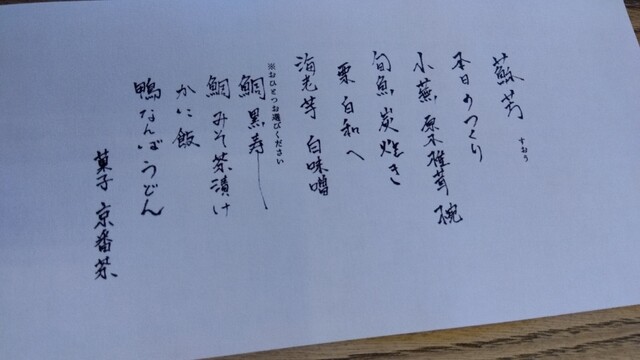 蘇芳
すおう
本日のつくり
小蕪 原木椎茸 碗
旬魚 炭焼き
栗 白和へ
海老芋 白味噌
※おひとつお選びください
鯛 黒寿し
鯛 みそ茶漬け
かに飯
鴨なんばうどん
菓子 京番茶